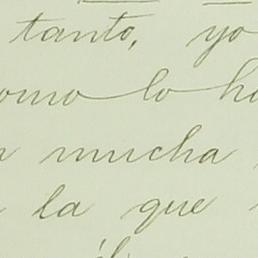 tanto, yo
como lo h
mucha
la que